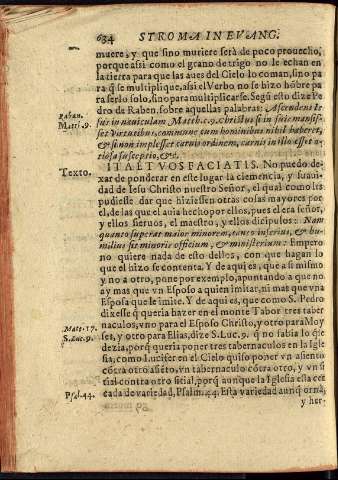 634 STROMA IN EVANG:
muere, y que sino muriere serà de poco prouecho,
porque assi como el grano de trigo no le echan en
la tierra para que las aues del Cielo lo coman, sino pa
ra q̃ se multiplique, assi el Verbo no se hizo hõbre pa
ra serlo solo, sino para multiplicarse. Segũ esto dize Pe
dro de Raben, sobre aquellas palabras: Ascendens Ie
Raban.
Matt. 9.
sus in nauiculam Matth. c. 9. Christus si in suis mansis-
set Virtutibus, commune cum hominibus nihil haberet,
& si non implesset carnis ordinem, carnis in illo esset o-
tiosa susceptio, &c.
Texto.
ITA ET VOS FACIATIS. No puedo de-
xar de ponderar en este lugar la clemencia, y suaui
dad de Iesu Christo nuestro Señor, el qual como les
pudiesse dar que hiziessen otras cosas mayores por
el, de las que el auia hecho por ellos, pues el era señor,
y ellos sieruos, el maestro, y ellos dicipulos: Nam
quanto superat maior minorem, tanto inferius, & hu-
milius fit minoris officium, & ministerium: Empero
no quiere nada de esto dellos, con que hagan lo
que el hizo se contenta. Y de aqui es, que a si mismo
y no a otro, pone por exemplo, apuntando a que no
ay mas que vn Esposo a quien imitar, ni mas que vna
Esposa que le imite. Y de aqui es, que como S. Pedro
dixesse q̃ queria hazer en el monte Tabor tres taber
Matt. 17.
S. Luc. 9.
naculos, vno para el Esposo Christo, y otro para Moy
ses, y otro para Elias, dize S. Luc. 9. q̃ no sabia lo q̃ se
dezia, porq̃ queria poner tres tabernaculos en la Igle
sia, como Lucifer en el Cielo quiso poner vn asiento
cõtra otro asiẽto, vn tabernaculo cõtra otro, y vn si
tial contra otro sitial, porq̃ aunque la Iglesia esta cer
Psal. 44.
cada de variedad, Psalm. 44. Esta variedad aunq̃ orna,
y her-